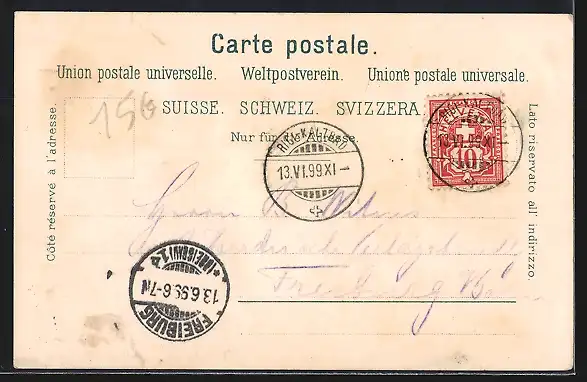 Carte postale.
Union postale universelle. Weltpostverein. Unione postale universale.
156
SUISSE. SCHWEIZ. SVIZZERA.
Nur für die Adresse.
Côté réservé à l'adresse.
Lato riservato all' indirizzo.
RIGI-KALTBAD
13.VI.99 XI
RIGI-KALTBAD
13.VI.99 XI
HELVETIA
10
Herrn B.
Freiburg
FREIBURG
13.6.99.6-7N
(BREISGAU) 14